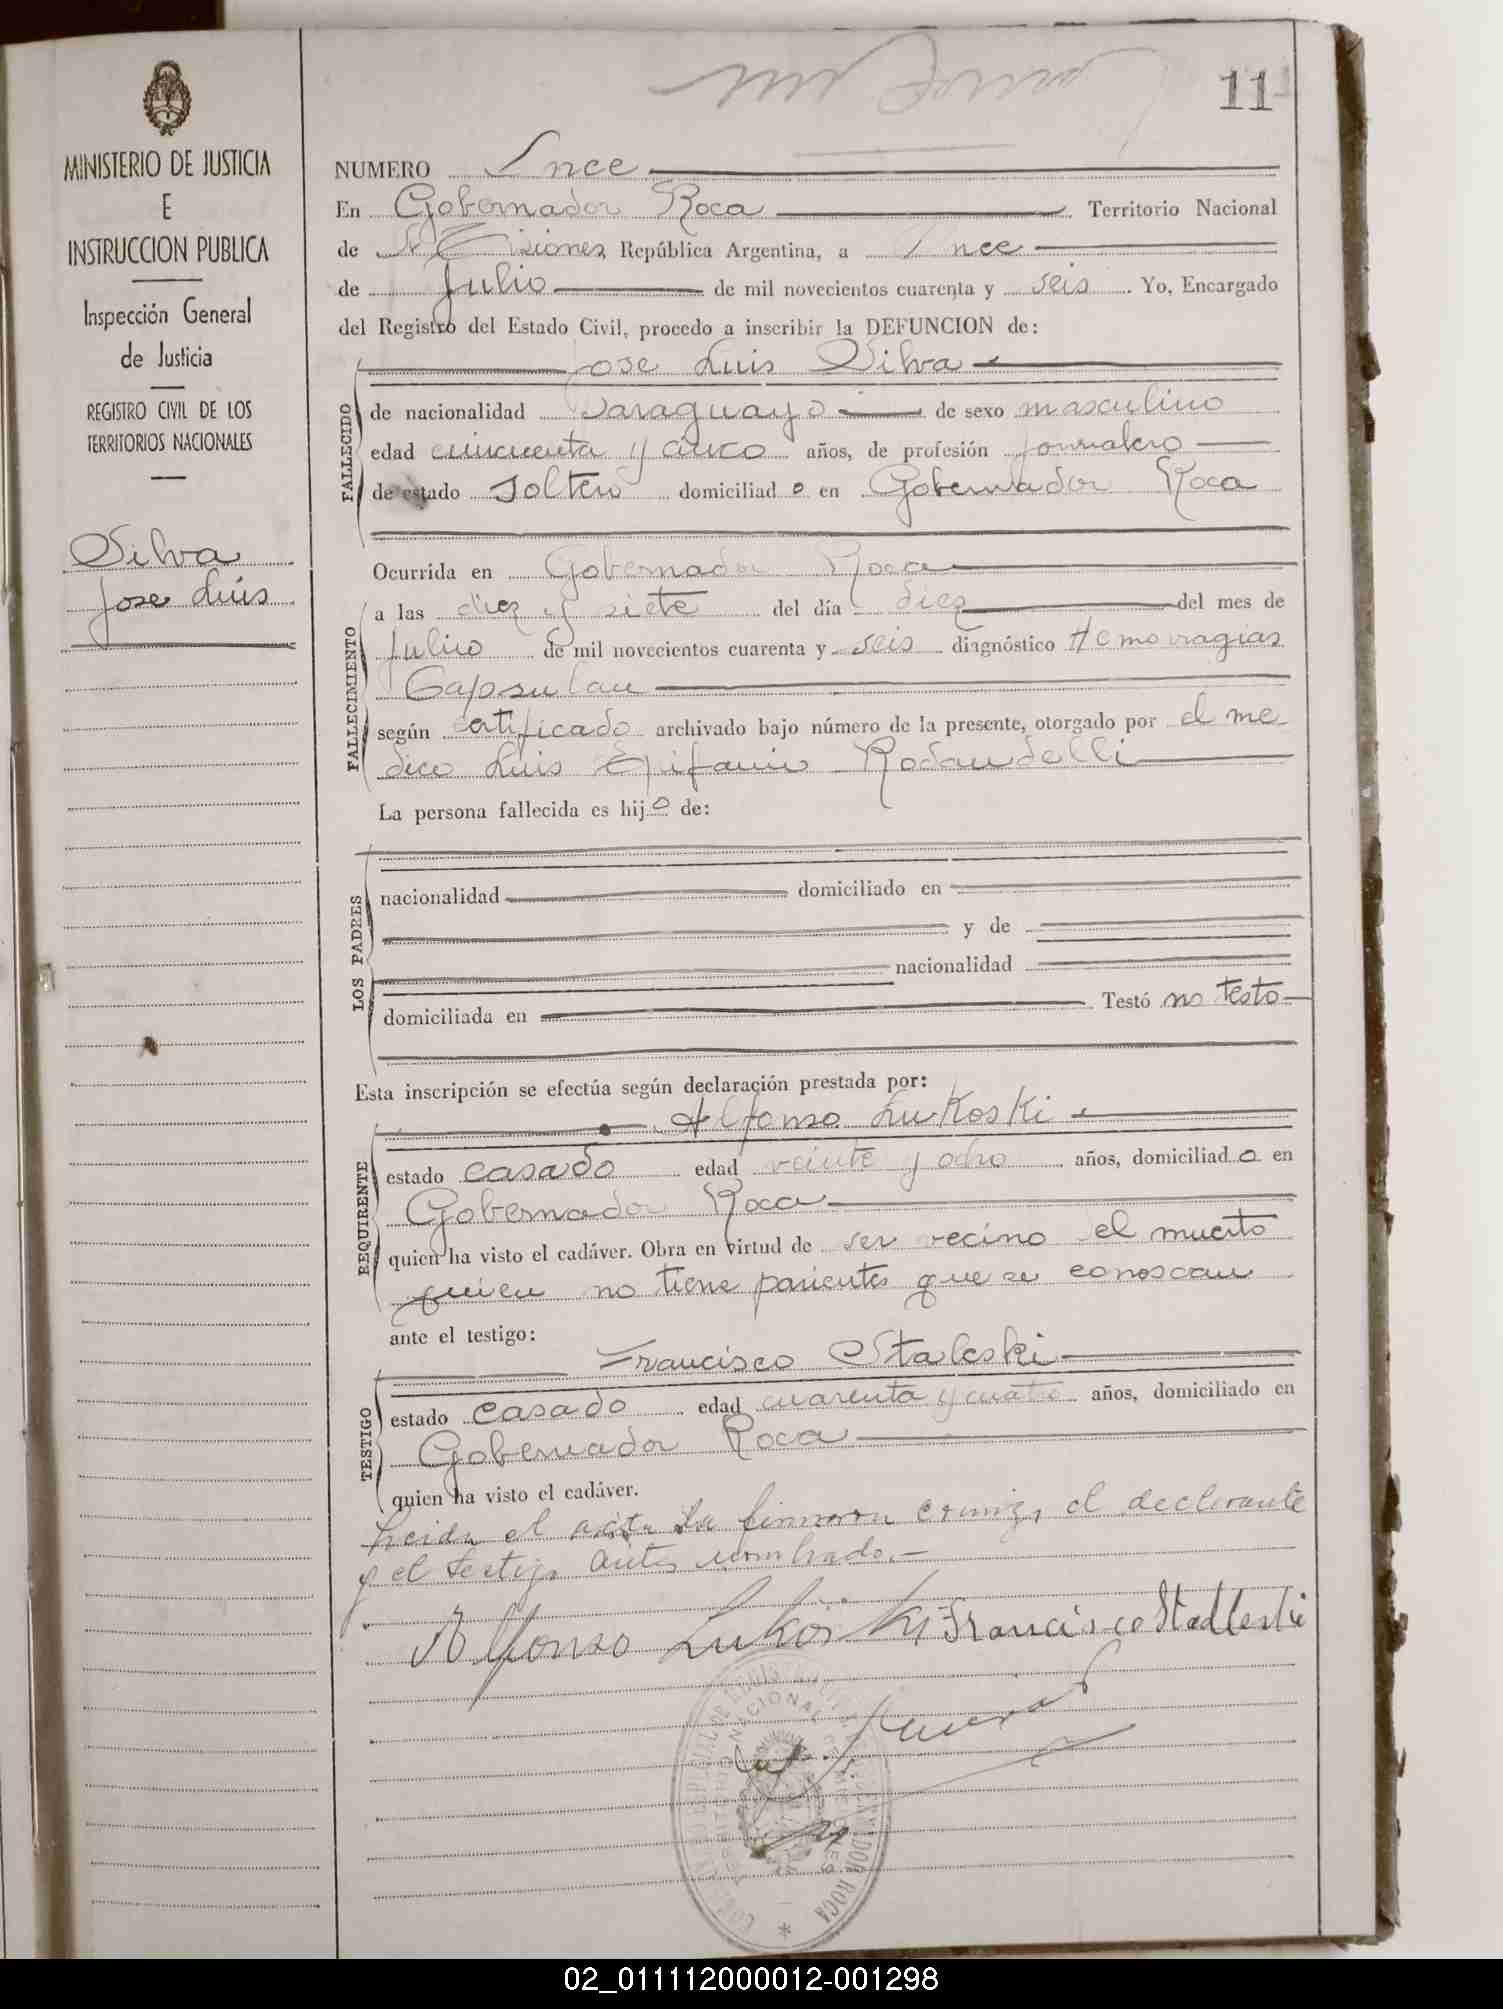 11
MINISTERIO DE JUSTICIA
E
INSTRUCCION PUBLICA
Inspección General
de Justicia
REGISTRO CIVIL DE LOS
TERRITORIOS NACIONALES
Silva
Jose Luis
NUMERO Once
En Gobernador Roca Territorio Nacional
de Misiones República Argentina, a Once
de Julio de mil novecientos cuarenta y seis. Yo, Encargado
del Registro del Estado Civil, procedo a inscribir la DEFUNCION de:
Jose Luis Silva
FALLECIDO
de nacionalidad Paraguayo de sexo masculino
edad cincuenta y cinco años, de profesión Jornalero
de estado Soltero domiciliado en Gobernador Roca
FALLECIMIENTO
Ocurrida en Gobernador Roca
a las diez y siete del día diez del mes de
Julio de mil novecientos cuarenta y seis diagnóstico Hemorragias
Capsulau
según certificado archivado bajo número de la presente, otorgado por el me
dico Luis Epifanio Rodaudelli
La persona fallecida es hijo de:
LOS PADRES
nacionalidad domiciliado en
y de
nacionalidad
domiciliada en Testó no testo
Esta inscripción se efectúa según declaración prestada por:
Alfonso Lukoski
REQUIRENTE
estado casado edad veinte y ocho años, domiciliado en
Gobernador Roca
quien ha visto el cadáver. Obra en virtud de ser vecino el muerto
quien no tiene parientes que se conoscan
ante el testigo:
Francisco Staleski
TESTIGO
estado casado edad cuarenta y cuatro años, domiciliado en
Gobernador Roca
quien ha visto el cadáver.
Leida el acta la firmaron conmigo el declarante
y el testigo antes nombrado.-
Alfonso Lukoski Francisco Stadleski
GOBERNADOR ROCA
02_011112000012-001298